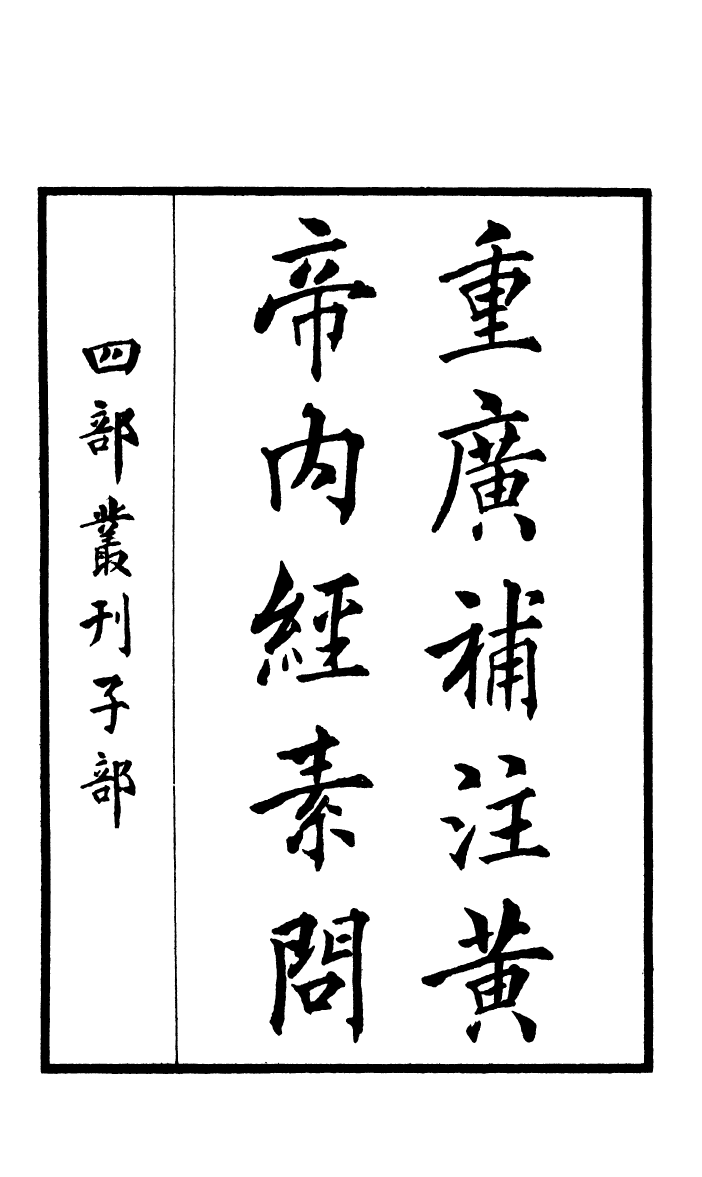 重廣補注黃
帝內經素問
四部叢刊子部